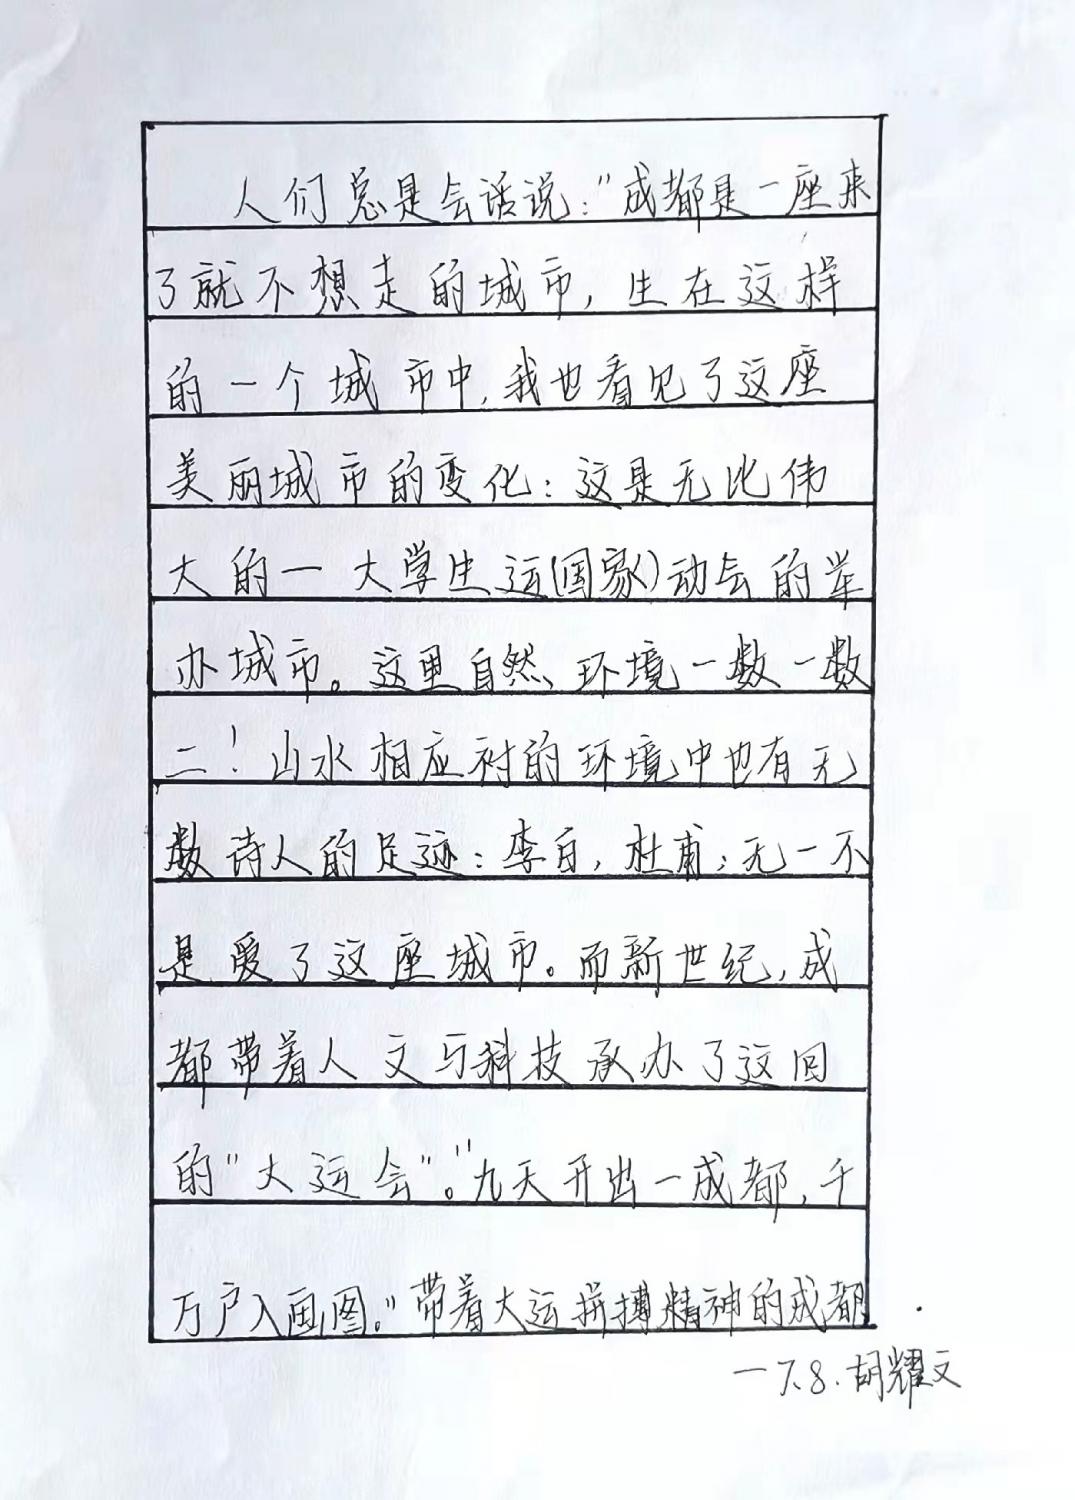 人们总是会话说："成都是一座来
了就不想走的城市，生在这样
的一个城市中，我也看见了这座
美丽城市的变化：这是无比伟
大的一大学生运(国家)动会的举
办城市。这里自然、环境一数一数
二！山水相应衬的环境中也有无
数诗人的足迹：李白，杜甫；无一不
是爱了这座城市。而新世纪，成
都带着人文与科技承办了这回
的"大运会"。"九天开出一成都，千
万户入画图。"带着大运拼搏精神的成都
一7.8.胡耀文